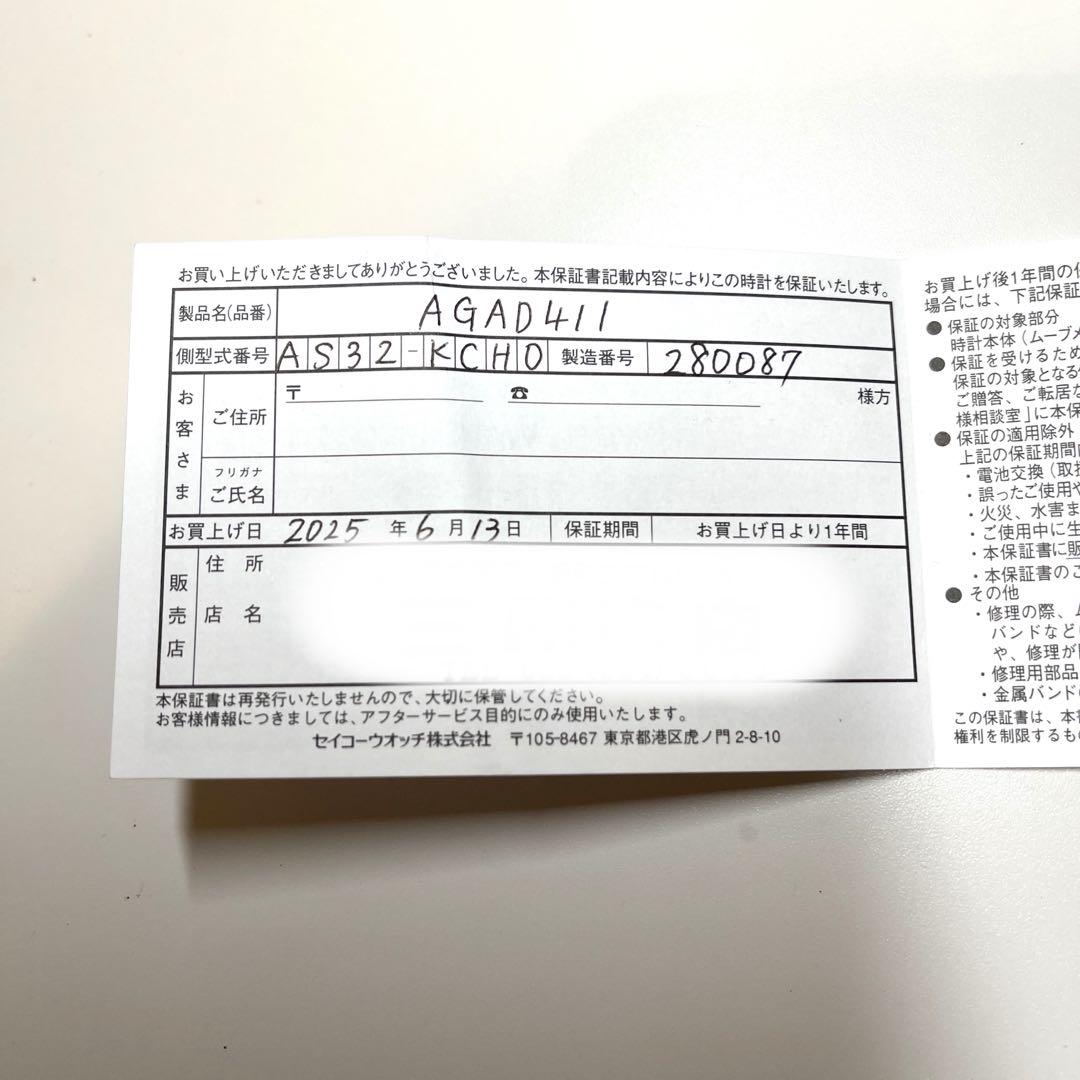 お買い上げいただきましてありがとうございました。本保証書記載内容によりこの時計を保証いたします。
製品名(品番) AGAD411
側型式番号 AS32-KCH0 製造番号 280087
お客さま
ご住所 〒 ☎ 様方
フリガナ
ご氏名
お買上げ日 2025 年 6 月 13 日 保証期間 お買上げ日より1年間
販売店
住 所
店 名
本保証書は再発行いたしませんので、大切に保管してください。
お客様情報につきましては、アフターサービス目的にのみ使用いたします。
セイコーウオッチ株式会社 〒105-8467 東京都港区虎ノ門 2-8-10
お買上げ後1年間の
場合には、下記保証
●保証の対象部分
時計本体(ムーブ
●保証を受けるため
保証の対象となる
ご贈答、ご転居
様相談室」に本保
●保証の適用除外
上記の保証期間
・電池交換(取
・誤ったご使用や
・火災、水害ま
・ご使用中に生
・本保証書に販
・本保証書のご
●その他
・修理の際、
バンドなど
や、修理が
・修理用部品
・金属バンド
この保証書は、本
権利を制限するも